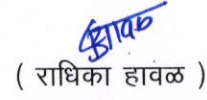 ( राधिका हावळ )